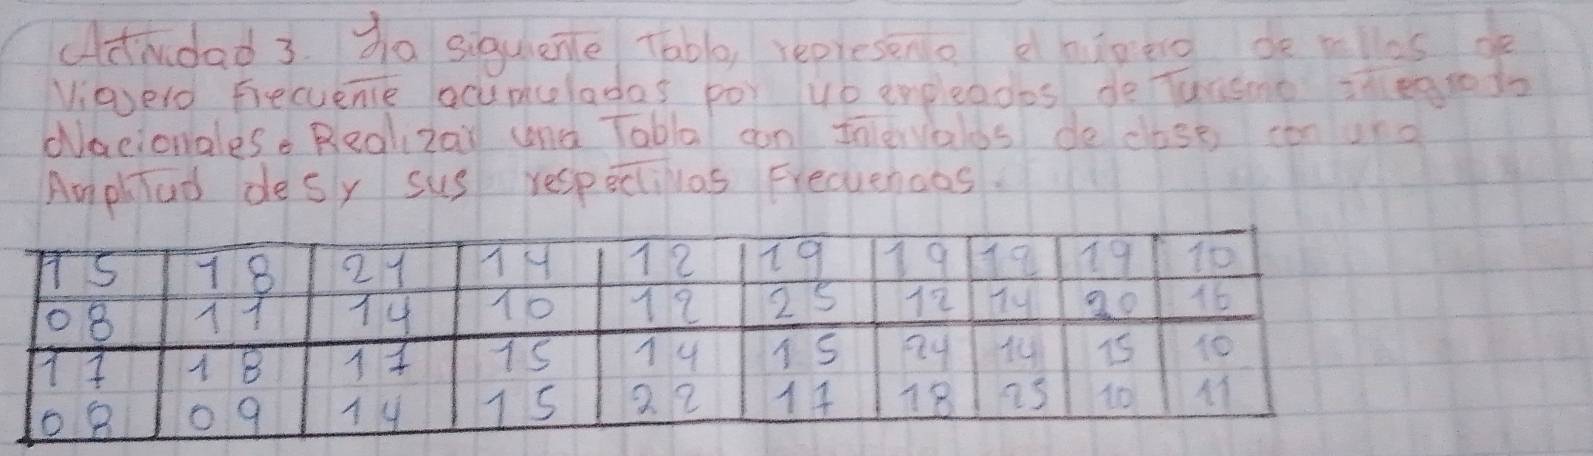 Actividad 3. La siguiente Tabla, representa el número de millas de
Viajero Frecuente acumuladas por 40 empleados de Turismo
Nacionales. Realizar una Tabla con Intervalos de clase con una
Amplitud de 5 y sus respectivas Frecuencias.
15 18 21 14 12 19 19 19 19 10
08 11 14 10 12 25 12 14 20 16
17 18 17 15 14 15 24 14 15 10
08 09 14 15 22 17 18 25 10 11